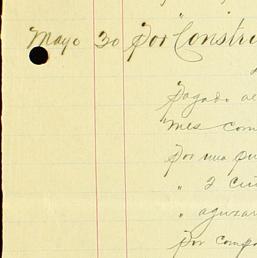 Mayo 30 Por Constru
Pagado al
mes com
Por una pu
" 2 
" aguzar
por comp